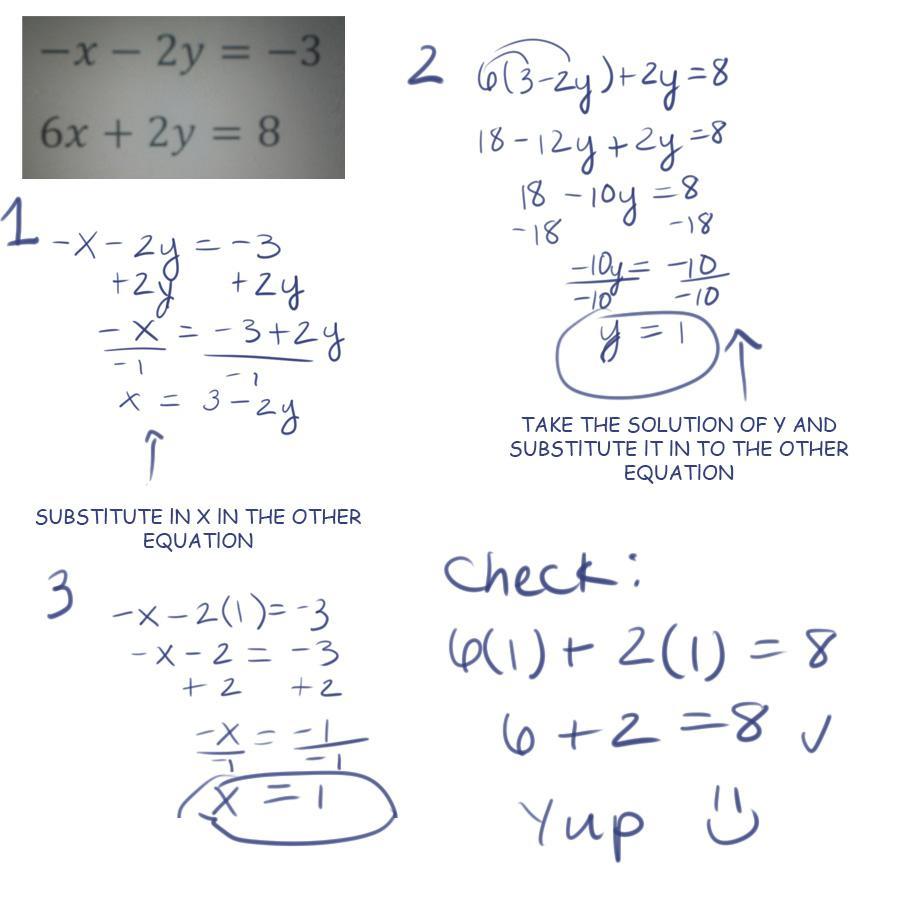 −x − 2y = −3
6x + 2y = 8
1
-x - 2y = -3
+2y +2y
-x = -3+2y
-1 -1
x = 3-2y
SUBSTITUTE IN X IN THE OTHER
EQUATION
2
6(3-2y)+2y=8
18-12y+2y=8
18 -10y =8
-18 -18
-10y= -10
-10 -10
y = 1
TAKE THE SOLUTION OF Y AND
SUBSTITUTE IT IN TO THE OTHER
EQUATION
3
-x-2(1)=-3
-x-2 = -3
+2 +2
-x = -1
-1 -1
x = 1
Check:
6(1)+ 2(1) = 8
6 +2 =8 ✓
Yup